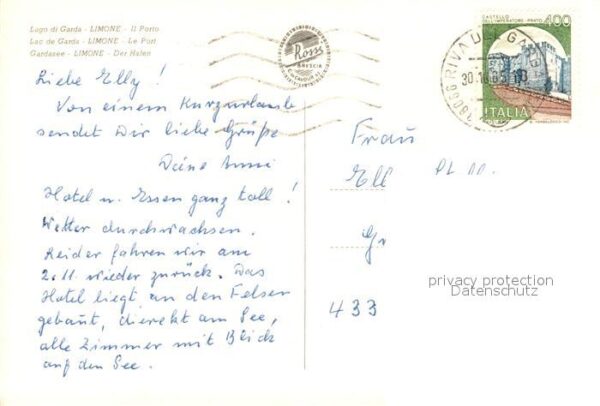 Lago di Garda - LIMONE - Il Porto
Lac de Garda - LIMONE - Le Port
Gardasee - LIMONE - Der Hafen
Ross
BRESCIA
38066 RIVA DEL GARDA
30.10.85
CASTELLO
DELL'IMPERATORE · PRATO
400
ITALIA
Liebe Elly!
Von einem Kurzurlaub
sendet Dir liebe Grüße
Deine Anni
Hotel u. Essen ganz toll!
Wetter durchwachsen.
Leider fahren wir am
2.11 wieder zurück. Das
Hotel liegt an den Felsen
gebaut, direkt am See,
alle Zimmer mit Blick
auf den See.
Frau
Ell
Gr
433
privacy protection
Datenschutz